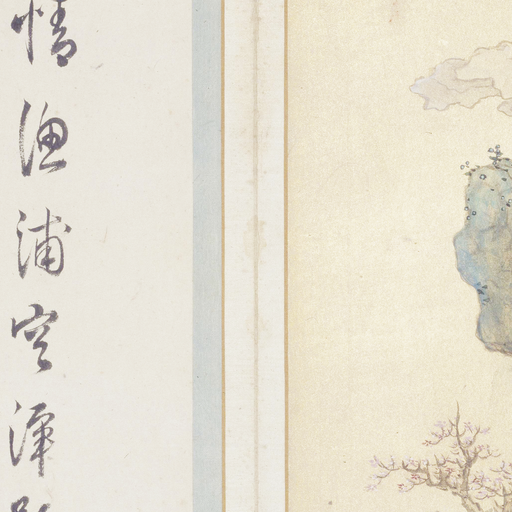 情漁浦空渾